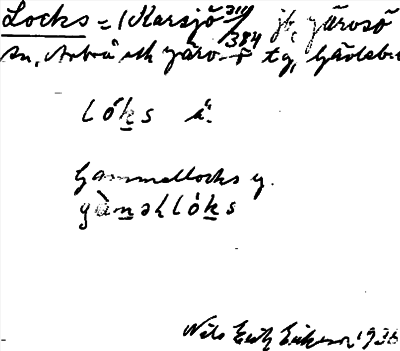 Locks = (Karsjö 310/384 jt, Järvsö
sn, Arbrå och Järv-ö tg, Gävlebo
lóks å.
Gammellocks g.
gàməllóks
Nils Erik Eriksson 1936